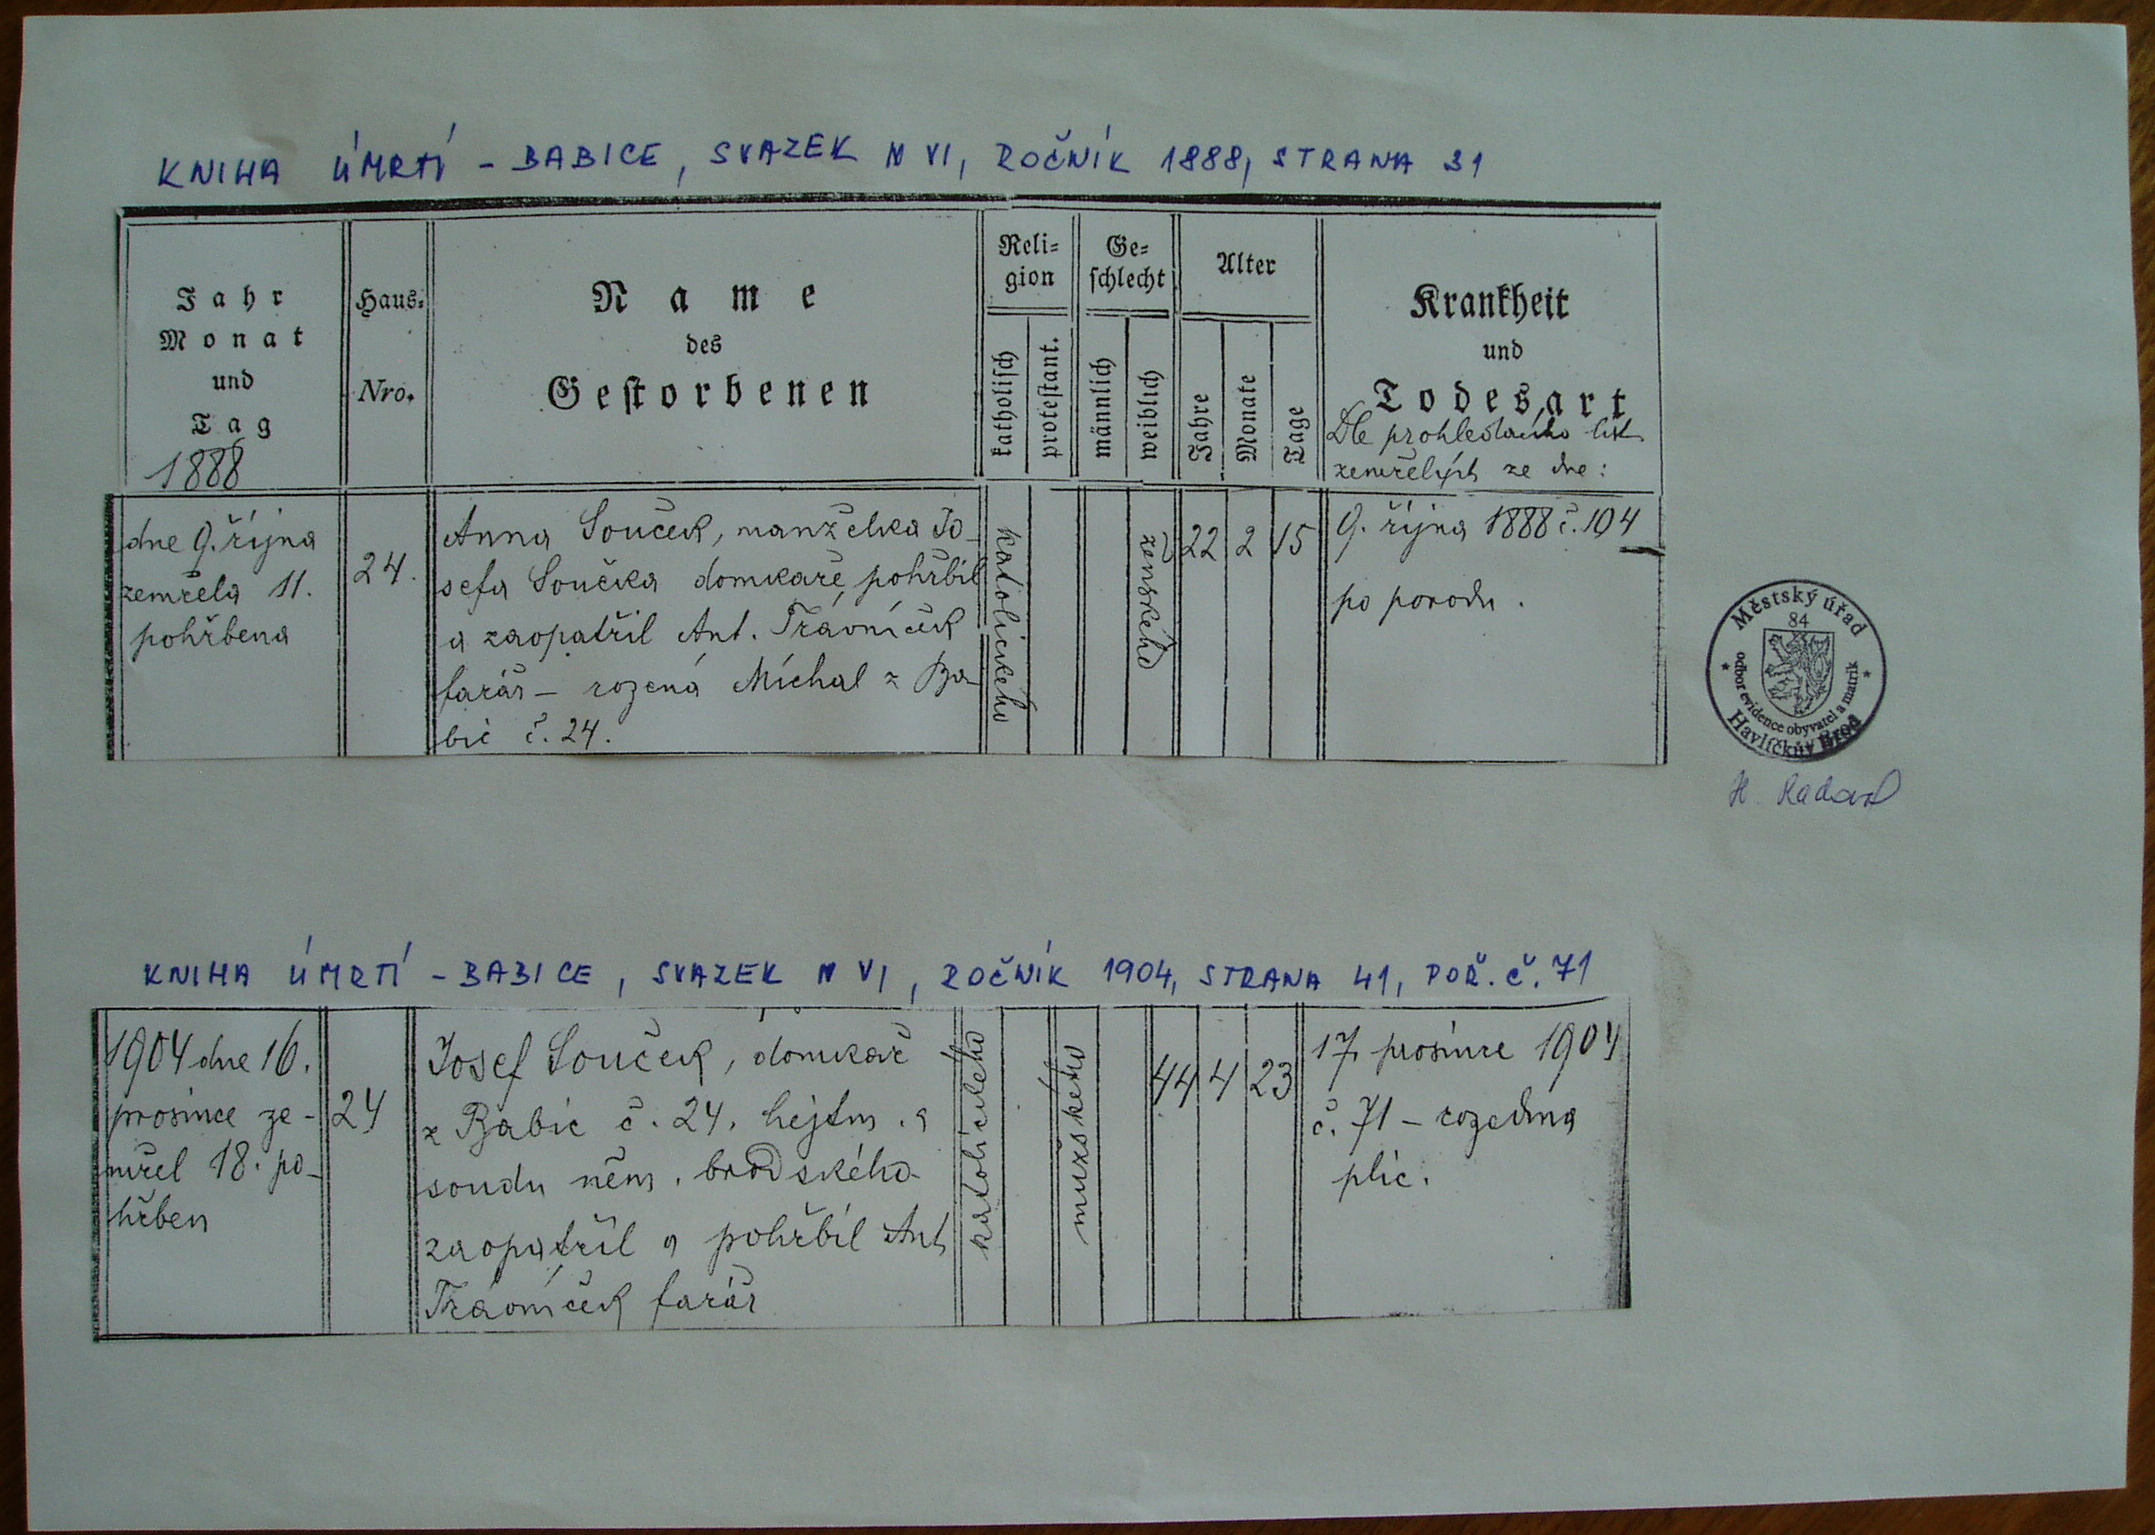 KNIHA ÚMRTÍ – BABICE, SVAZEK N VI, ROČNÍK 1888, STRANA 31
Jahr
Monat
und
Tag
1888
Haus-
Nro.
Name
des
Gestorbenen
Reli-
gion
katholisch
protestant.
Ge-
schlecht
männlich
weiblich
Alter
Jahre
Monate
Tage
Krankheit
und
Todesart
Dle prohledacího list
zemřelých ze dne:
dne 9. října
zemřela 11.
pohřbena
24.
Anna Souček, manželka Jo-
sefa Součka domkaře, pohřbil
a zaopatřil Ant. Trávníček
farář – rozená Míchal z Ba-
bic č. 24.
katolického
ženského
22
2
15
9. října 1888 č. 104
po porodu.
Městský úřad
84
odbor evidence obyvatel a matrik
Havlíčkův Brod
H.
KNIHA ÚMRTÍ – BABICE, SVAZEK N VI, ROČNÍK 1904, STRANA 41, POŘ. Č. 71
1904 dne 16.
prosince ze-
mřel 18. po-
hřben
24
Josef Souček, domkař
z Babic č. 24. hejtm. a
soudu něm. brodského
zaopatřil a pohřbil Ant
Trávníček farář
katolického
mužského
44
4
23
17. prosince 1904
č. 71 – rozedma
plic.